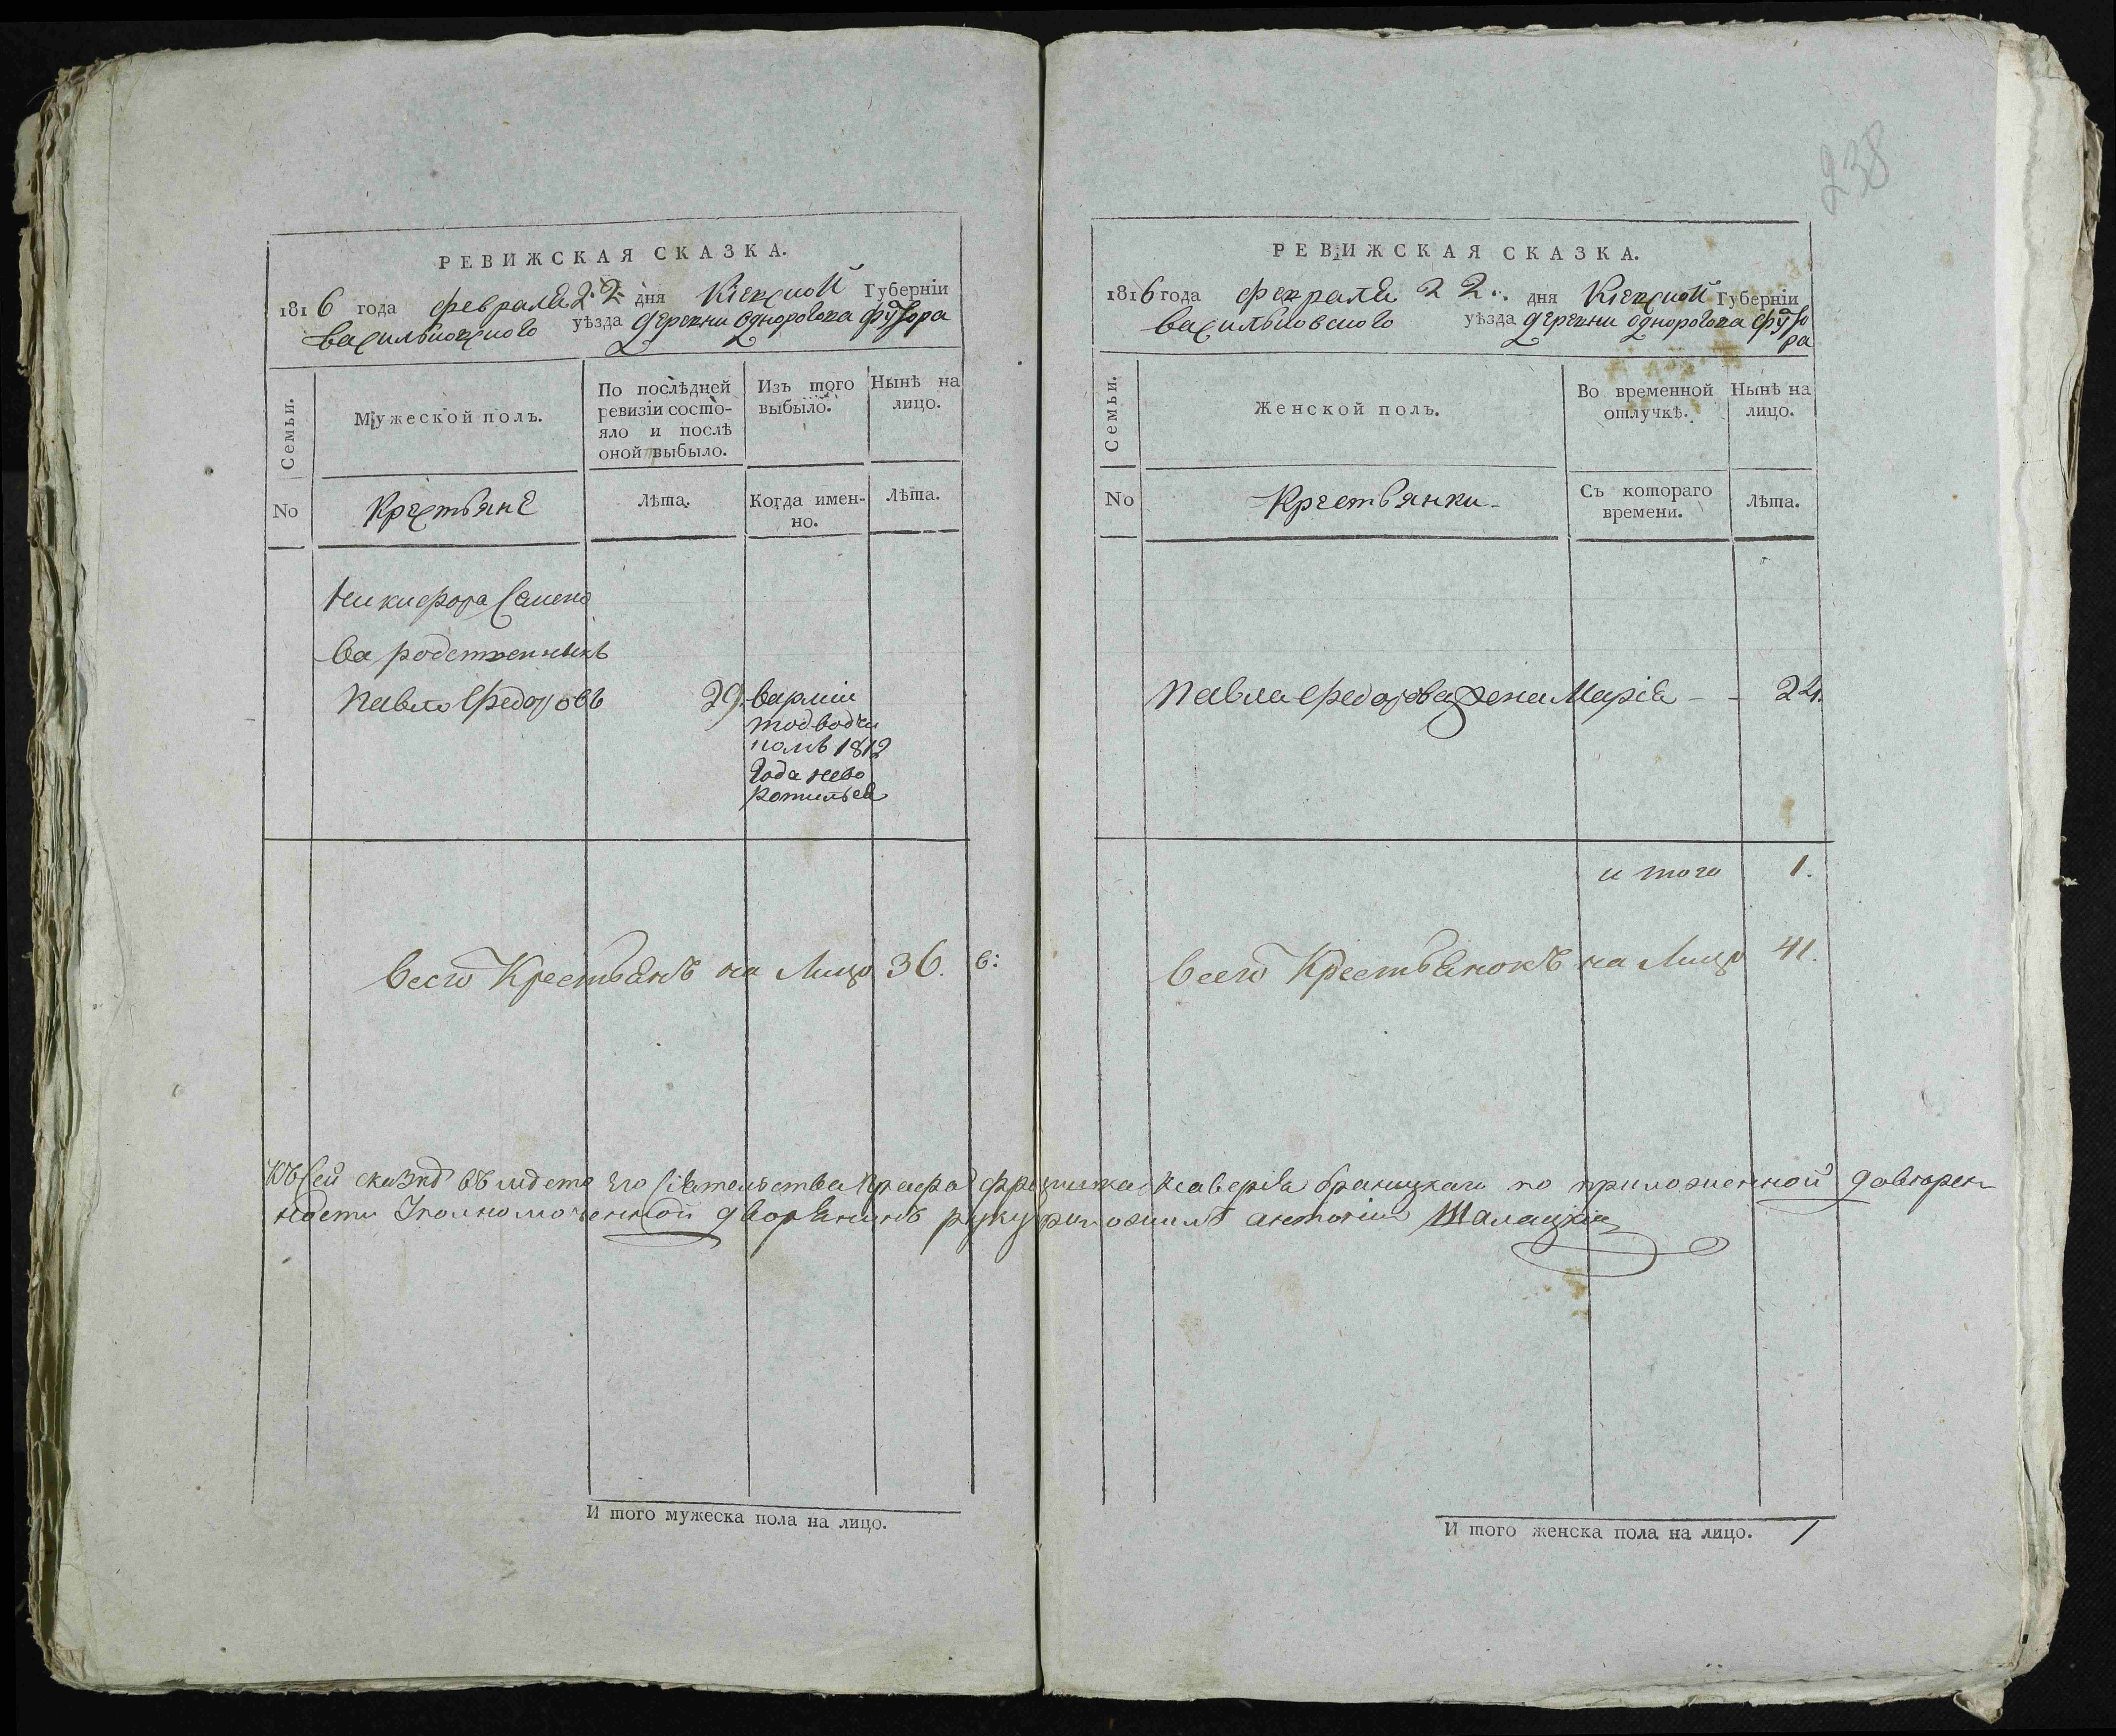 238
РЕВИЖСКАЯ СКАЗКА.
1816 года февраля 22 дня Кіевской Губерніи
васильковского уѣзда деревни однорогова футора
Семьи.
Мужеской полъ.
По послѣдней
ревизіи состо-
яло и послѣ
оной выбыло.
Изъ того
выбыло.
Нынѣ на
лицо.
No
Крестьяне
Лѣта.
Когда имен-
но.
Лѣта.
Никифора Семено
ва родственникъ
Павло Федоровъ 29. варміи
подводчи
комъ 1812
года нево
ротился
всего Крестьянъ на Лицо 36. в:
И того мужеска пола на лицо.
РЕВИЖСКАЯ СКАЗКА.
1816 года февраля 22.. дня Кіевской Губерніи
васильковского уѣзда деревни однорогова футо
ра
Семьи.
Женской полъ.
Во временной
отлучкѣ.
Нынѣ на
лицо.
No
Крестьянки
Съ котораго
времени.
Лѣта.
Павла Федорова жена Марія - - 24.
и того 1.
всего Крестьянокъ на Лицо 41.
Къ сей сказкѣ вмѣсто его сіятельства Графа Ксаверія браницкаго по приложенной доверен
ности дворянинъ руку приложилъ антоній
И того женска пола на лицо. 1